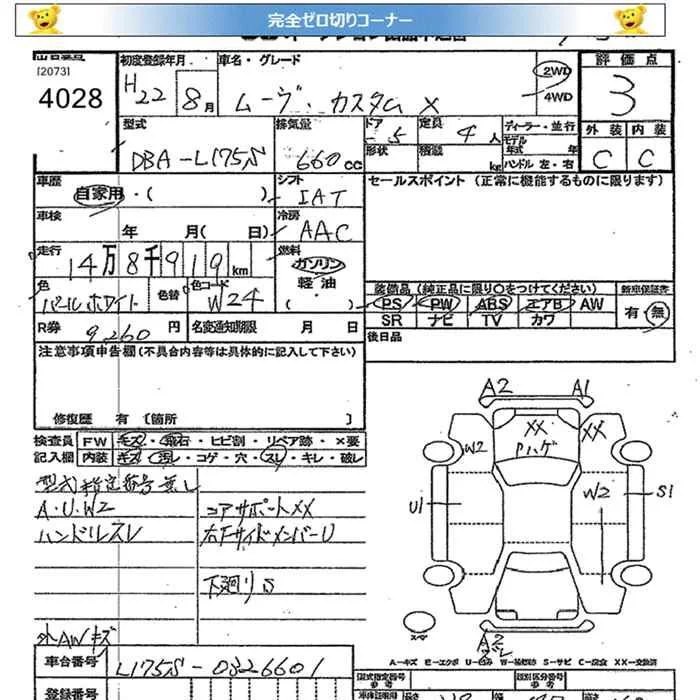 完全ゼロ切りコーナー
[2073]
4028
初度登録年月
H22 8月
車名・グレード
ムーヴ・カスタム X
2WD
4WD
評価点
3
外装 内装
C C
型式
DBA-L175S
排気量
660cc
ドア
- 5
形状
定員
4人
積載
kg
ディーラー・並行
モデル年式 年
ハンドル 左・右
車歴
自家用・( )
シフト
IAT
セールスポイント (正常に機能するものに限ります)
車検
年 月( 日)
冷房
AAC
走行
14万8千919km
燃料
ガソリン
軽・油
( )
色
パールホワイト
色替
色コード
W24
装備品(純正品に限り○をつけてください)
PS PW ABS エアB AW
SR ナビ TV カワ
新車保証書
有・無
R券
9,260円
名変通知期限 月 日
後日品
注意事項申告欄(不具合内容等は具体的に記入して下さい)
修復歴 有 [箇所 ]
検査員 FW キズ・飛石・ヒビ割・リペア跡・×要
記入欄 内装 キズ・汚レ・コゲ・穴・スレ・キレ・破レ
型式指定番号無し
A・U・W2
ハンドルスレ
コアサポートXX
右Fサイドメンバー U
下廻りS
外AWキズ
A2 A1
XX
Pハゲ
XX
W2
U1
W2
S1
スペ
A2
A-キズ E-エクボ U-凹み W-補修跡 S-サビ C-腐食 XX-交換済
車台番号
L175S-0326601
登録番号
型式指定番号
類別区分番号